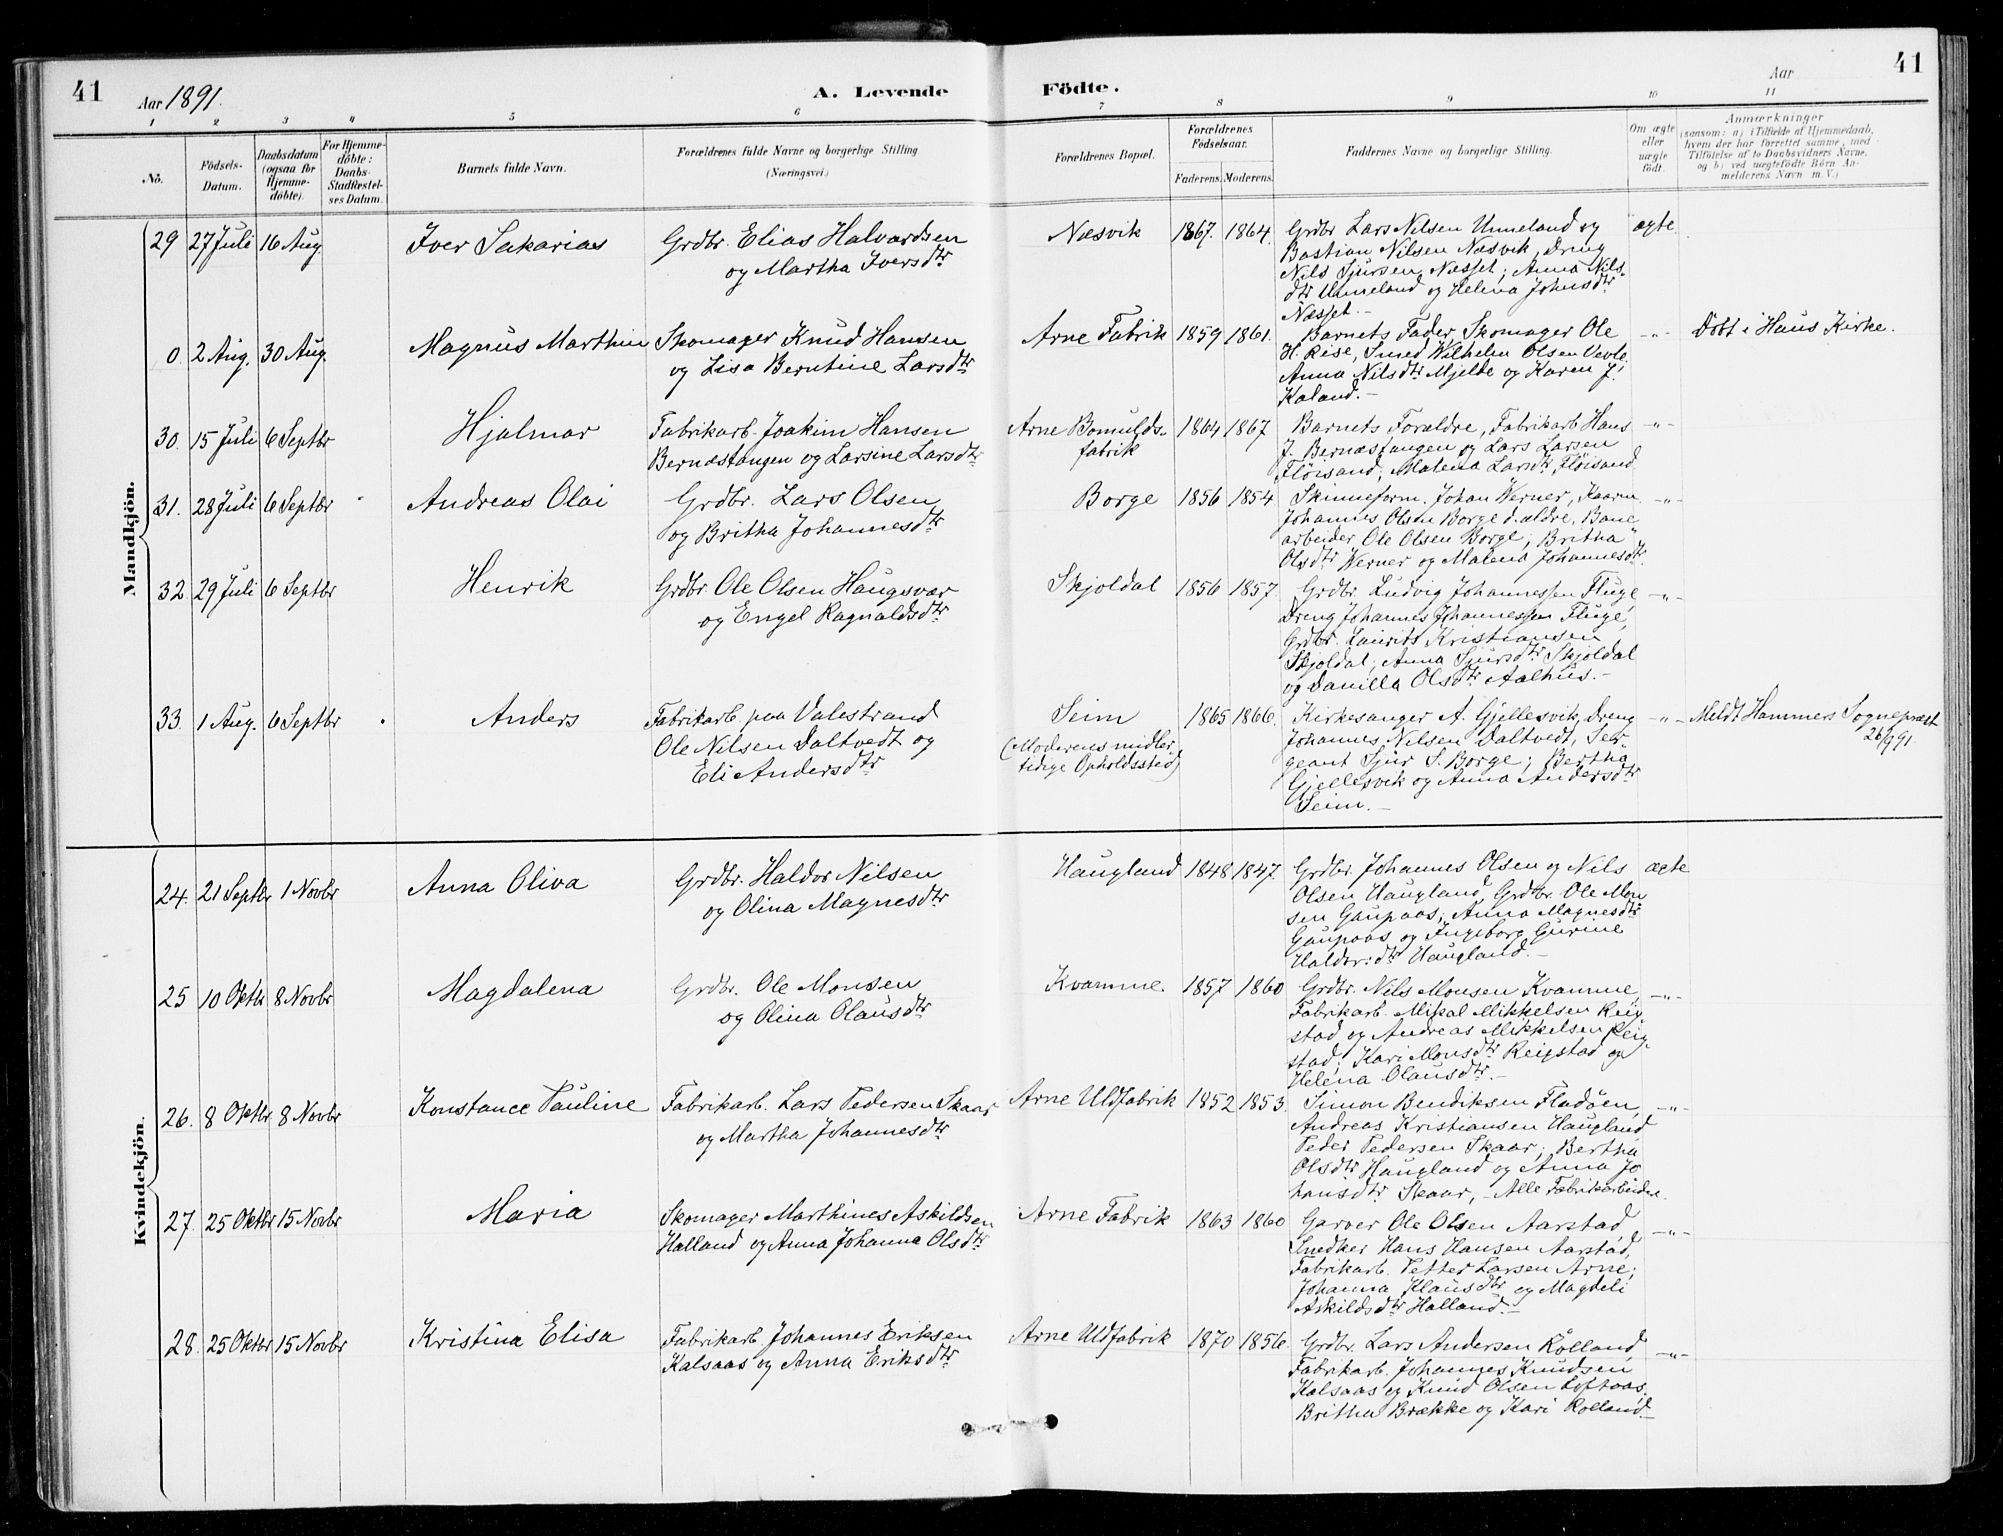 41
Aar 1891.
A. Levende Födte.
Aar
41
1 2 3 4 5 6 7 8 9 10 11
No.
Födsels-Datum.
Daabsdatum (ogsaa for Hjemme-döbte).
For Hjemme-döbte: Daabs-Stadfæstelses Datum.
Barnets fulde Navn.
Forældrenes fulde Navne og borgerlige Stilling. (Næringsvei.)
Forældrenes Bopæl.
Forældrenes Födselsaar.
Faderens. Moderens.
Faddernes Navne og borgerlige Stilling.
Om ægte eller uægte födt.
Anmærkninger
(saasom: a) i Tilfælde af Hjemmedaab, hvem der har forrettet samme, med Tilföielse af to Daabsvidners Navne, og b) ved uægtefödte Börn Anmelderens Navn m. V.)
Mandkjön.
29 27 Juli 16 Aug. Iver Sakarias
Grdbr. Elias Halvardsen
og Martha Iversdtr
Næsvik 1867. 1864.
Grdbr Lars Nilsen Unneland og
Bastian Nilsen Næsvik, Dreng
Nils Sjursen Næsset; Anna Nils-
dtr Unneland og Helena Johnsdtr
Næsset.-
ægte
0. 2 Aug. 30 Aug. Magnus Marthin
Skomager Knud Hansen
og Lisa Berntine Larsdtr
Arne Fabrik 1859 1861.
Barnets Fader, Skomager Ole
H. Rise, Smed Wilhelm Olsen Vevle
Anna Nilsdtr Mjelde og Karen J.
Kaland.-
-"- Döbt i Haus Kirke.
30. 15 Juli 6 Septbr Hjalmar
Fabrikarb. Joakim Hansen
Bernæstangen og Larsine Larsdtr
Arne Bomulds-
fabrik
1864 1867
Barnets Forældre, Fabrikarb Hans
J. Bernæstangen og Lars Larsen
Flöisand; Malena Larsdtr Flöisand
-"-
31. 28 Juli 6 Septbr Andreas Olai
Grdbr. Lars Olsen
og Britha Johannesdtr
Borge 1856 1854
Skinneform. Johan Werner, Kaarm.
Johannes Olsen Borge d. ældre, Bane-
arbeider Ole Olsen Borge; Britha
Olsdtr Werner og Malena Johannesdtr.
-"-
32 29 Juli 6 Septbr Henrik
Grdbr. Ole Olsen Haugsvær
og Engel Ragnaldsdtr
Skjoldal 1856 1857
Grdbr. Ludvig Johannessen Fluge
Dreng Johannes Johannessen Fluge,
Grdbr. Laurits Kristiansen
Skjoldal; Anna Sjursdtr Skjoldal
og Danilla Olsdtr Aalhus.-
-"-
33. 1 Aug. 6 Septbr Anders
Fabrikarb. paa Valestrand
Ole Nilsen Daltvedt og
Eli Andersdtr
Seim
(Moderens midler-
tidige Opholdssted)
1865 1866.
Kirkesanger A. Gjellesvik, Dreng
Johannes Nilsen Daltvedt, Ser-
geant Sjur S. Borge; Bertha
Gjellesvik og Anna Andersdtr
Seim.-
-"- Meldt Hammers Sognepræst
26/9 91.
Kvindekjön.
24. 21 Septbr 1 Novbr Anna Oliva
Grdbr. Haldor Nilsen
og Olina Magnesdtr
Haugland 1848 1847.
Grdbr. Johannes Olsen og Nils
Olsen Haugland, Grdbr. Ole Mon
sen Gaupaas; Anna Magnesdtr
Gaupaas og Ingeborg Gurine
Haldorsdtr Haugland.-
ægte
25 10 Oktbr 8 Novbr Magdalena
Grdbr. Ole Monsen
og Olina Olausdtr
Kvamme. 1857 1860
Grdbr. Nils Monsen Kvamme,
Fabrikarb. Mikal Mikkelsen Reig-
stad og Andreas Mikkelsen Reig-
stad; Kari Monsdtr Reigstad og
Helena Olausdtr.-
-"-
26. 8 Oktbr 8 Novbr Konstance Pauline
Fabrikarb. Lars Pedersen Skaar
og Martha Johannesdtr
Arne Uldfabrik 1852 1853.
Simon Bendiksen Fladöen,
Andreas Kristiansen Haugland
Peder Pedersen Skaar; Bertha
Olsdtr Haugland og Anna Jo
hansdtr Skaar,- Alle Fabrikarbeidere.
-"-
27. 25 Oktbr 15 Novbr Maria
Skomager Marthines Askildsen
Halland og Anna Johanna Olsdtr
Arne Fabrik 1863 1860
Garver Ole Olsen Aarstad,
Snedker Hans Hansen Aarstad,
Fabrikarb. Petter Larsen Arne;
Johanna Klausdtr og Magdeli
Askildsdtr Halland.-
-"-
28. 25 Oktbr 15 Novbr Kristina Elisa
Fabrikarb. Johannes Eriksen
Kalsaas og Anna Eriksdtr
Arne Uldfabrik 1870 1856.
Grdbr. Lars Andersen Rolland
Fabrikarb. Johannes Knudsen
Kalsaas og Knud Olsen Loftaas.
Britha Brække og Kari Rolland-
-"-